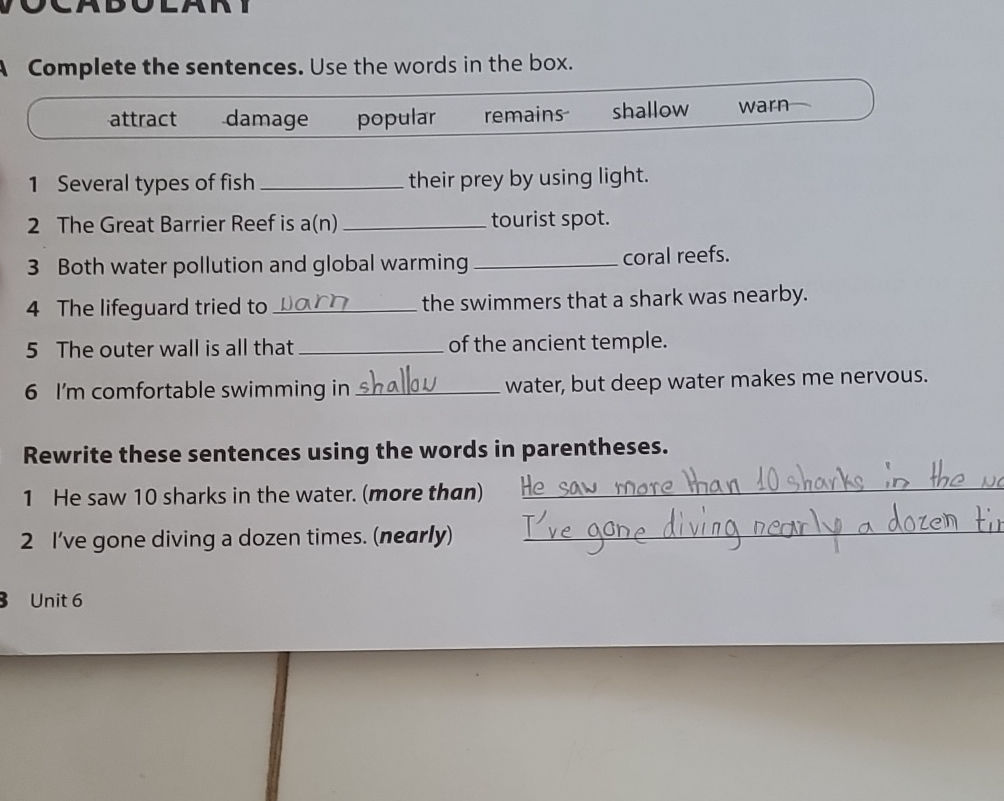 VOCABULARY
A Complete the sentences. Use the words in the box.
attract damage popular remains shallow warn
1 Several types of fish ____________ their prey by using light.
2 The Great Barrier Reef is a(n) ____________ tourist spot.
3 Both water pollution and global warming ____________ coral reefs.
4 The lifeguard tried to warn the swimmers that a shark was nearby.
5 The outer wall is all that ____________ of the ancient temple.
6 I'm comfortable swimming in shallow water, but deep water makes me nervous.
Rewrite these sentences using the words in parentheses.
1 He saw 10 sharks in the water. (more than) He saw more than 10 sharks in the
2 I've gone diving a dozen times. (nearly) I've gone diving nearly a dozen
Unit 6